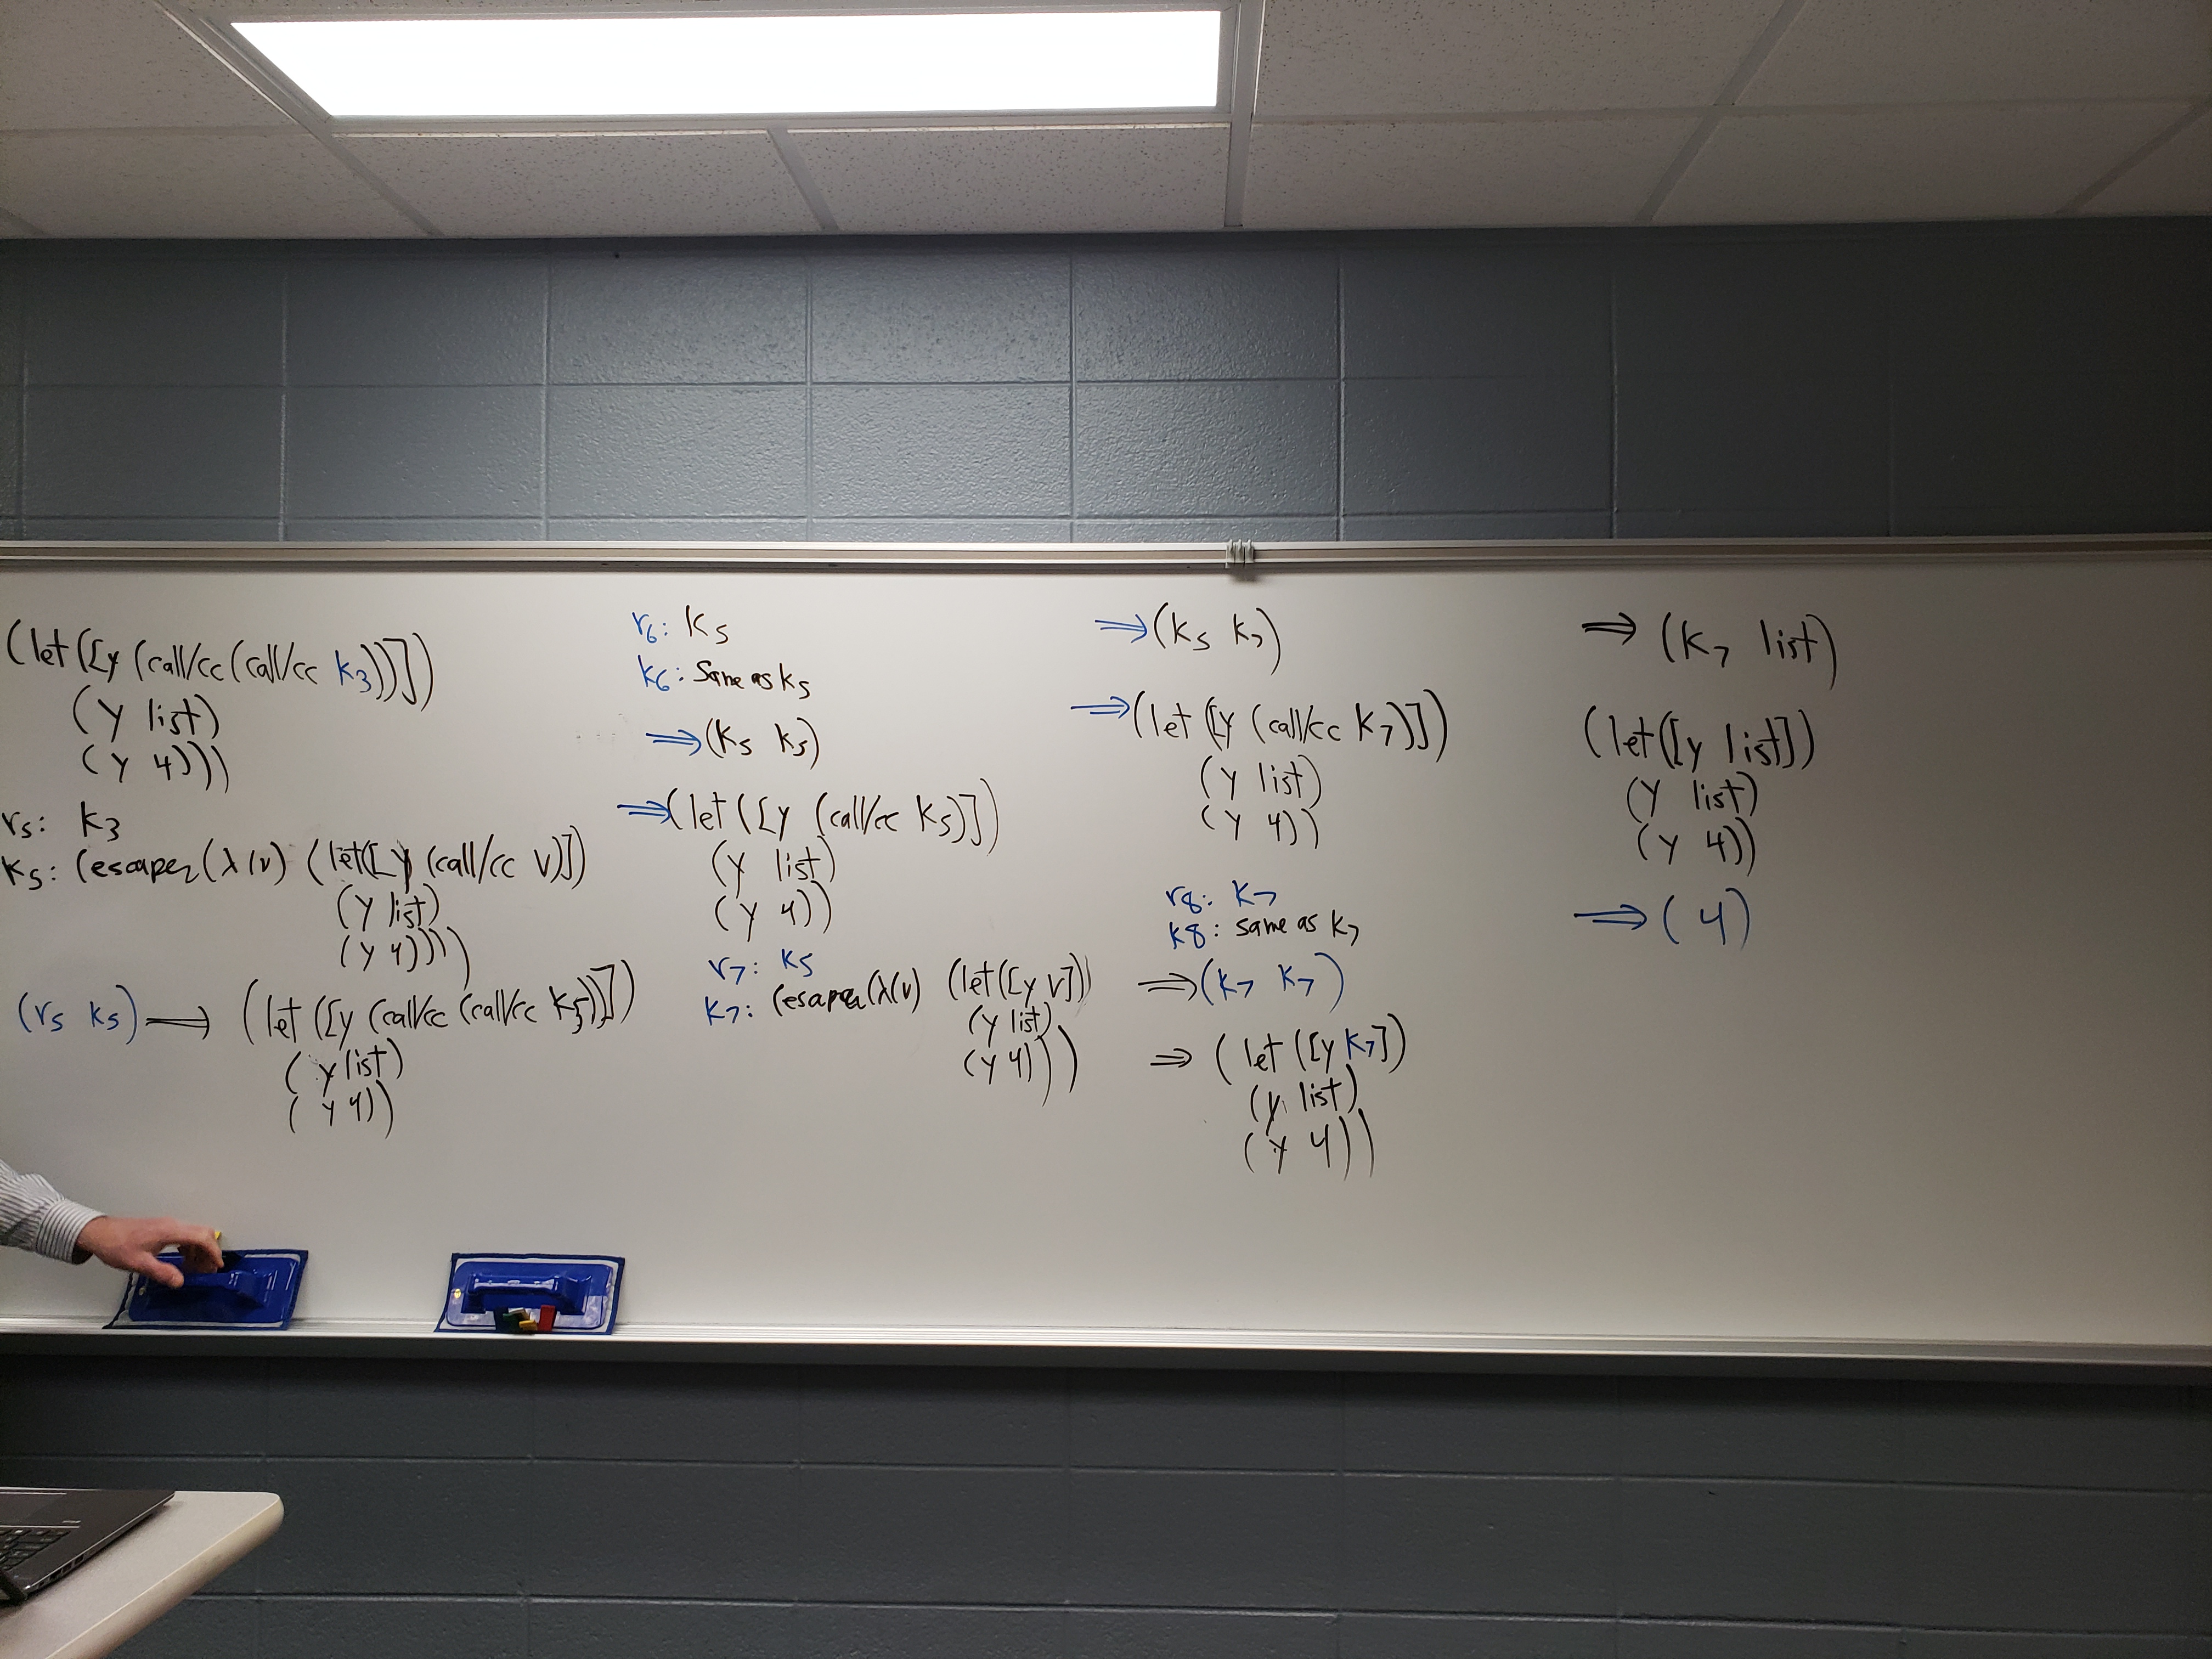 (let ([y (call/cc (call/cc k3))])
(y list)
(y 4)))
r5: k3
k5: (escaper (λ (v) (let ([y (call/cc v)])
(y list)
(y 4))))
(r5 k5) ⟹ (let ([y (call/cc (call/cc k5))])
(y list)
(y 4))
r6: k5
k6: Same as k5
⟹ (k5 k5)
⟹ (let ([y (call/cc k5)])
(y list)
(y 4))
r7: k5
k7: (escaper (λ (v) (let ([y v])
(y list)
(y 4)))
⟹ (k5 k7)
⟹ (let ([y (call/cc k7)])
(y list)
(y 4))
r8: k7
k8: same as k7
⟹ (k7 k7)
⟹ (let ([y k7])
(y list)
(y 4))
⟹ (k7 list)
(let ([y list])
(y list)
(y 4))
⟹ (4)